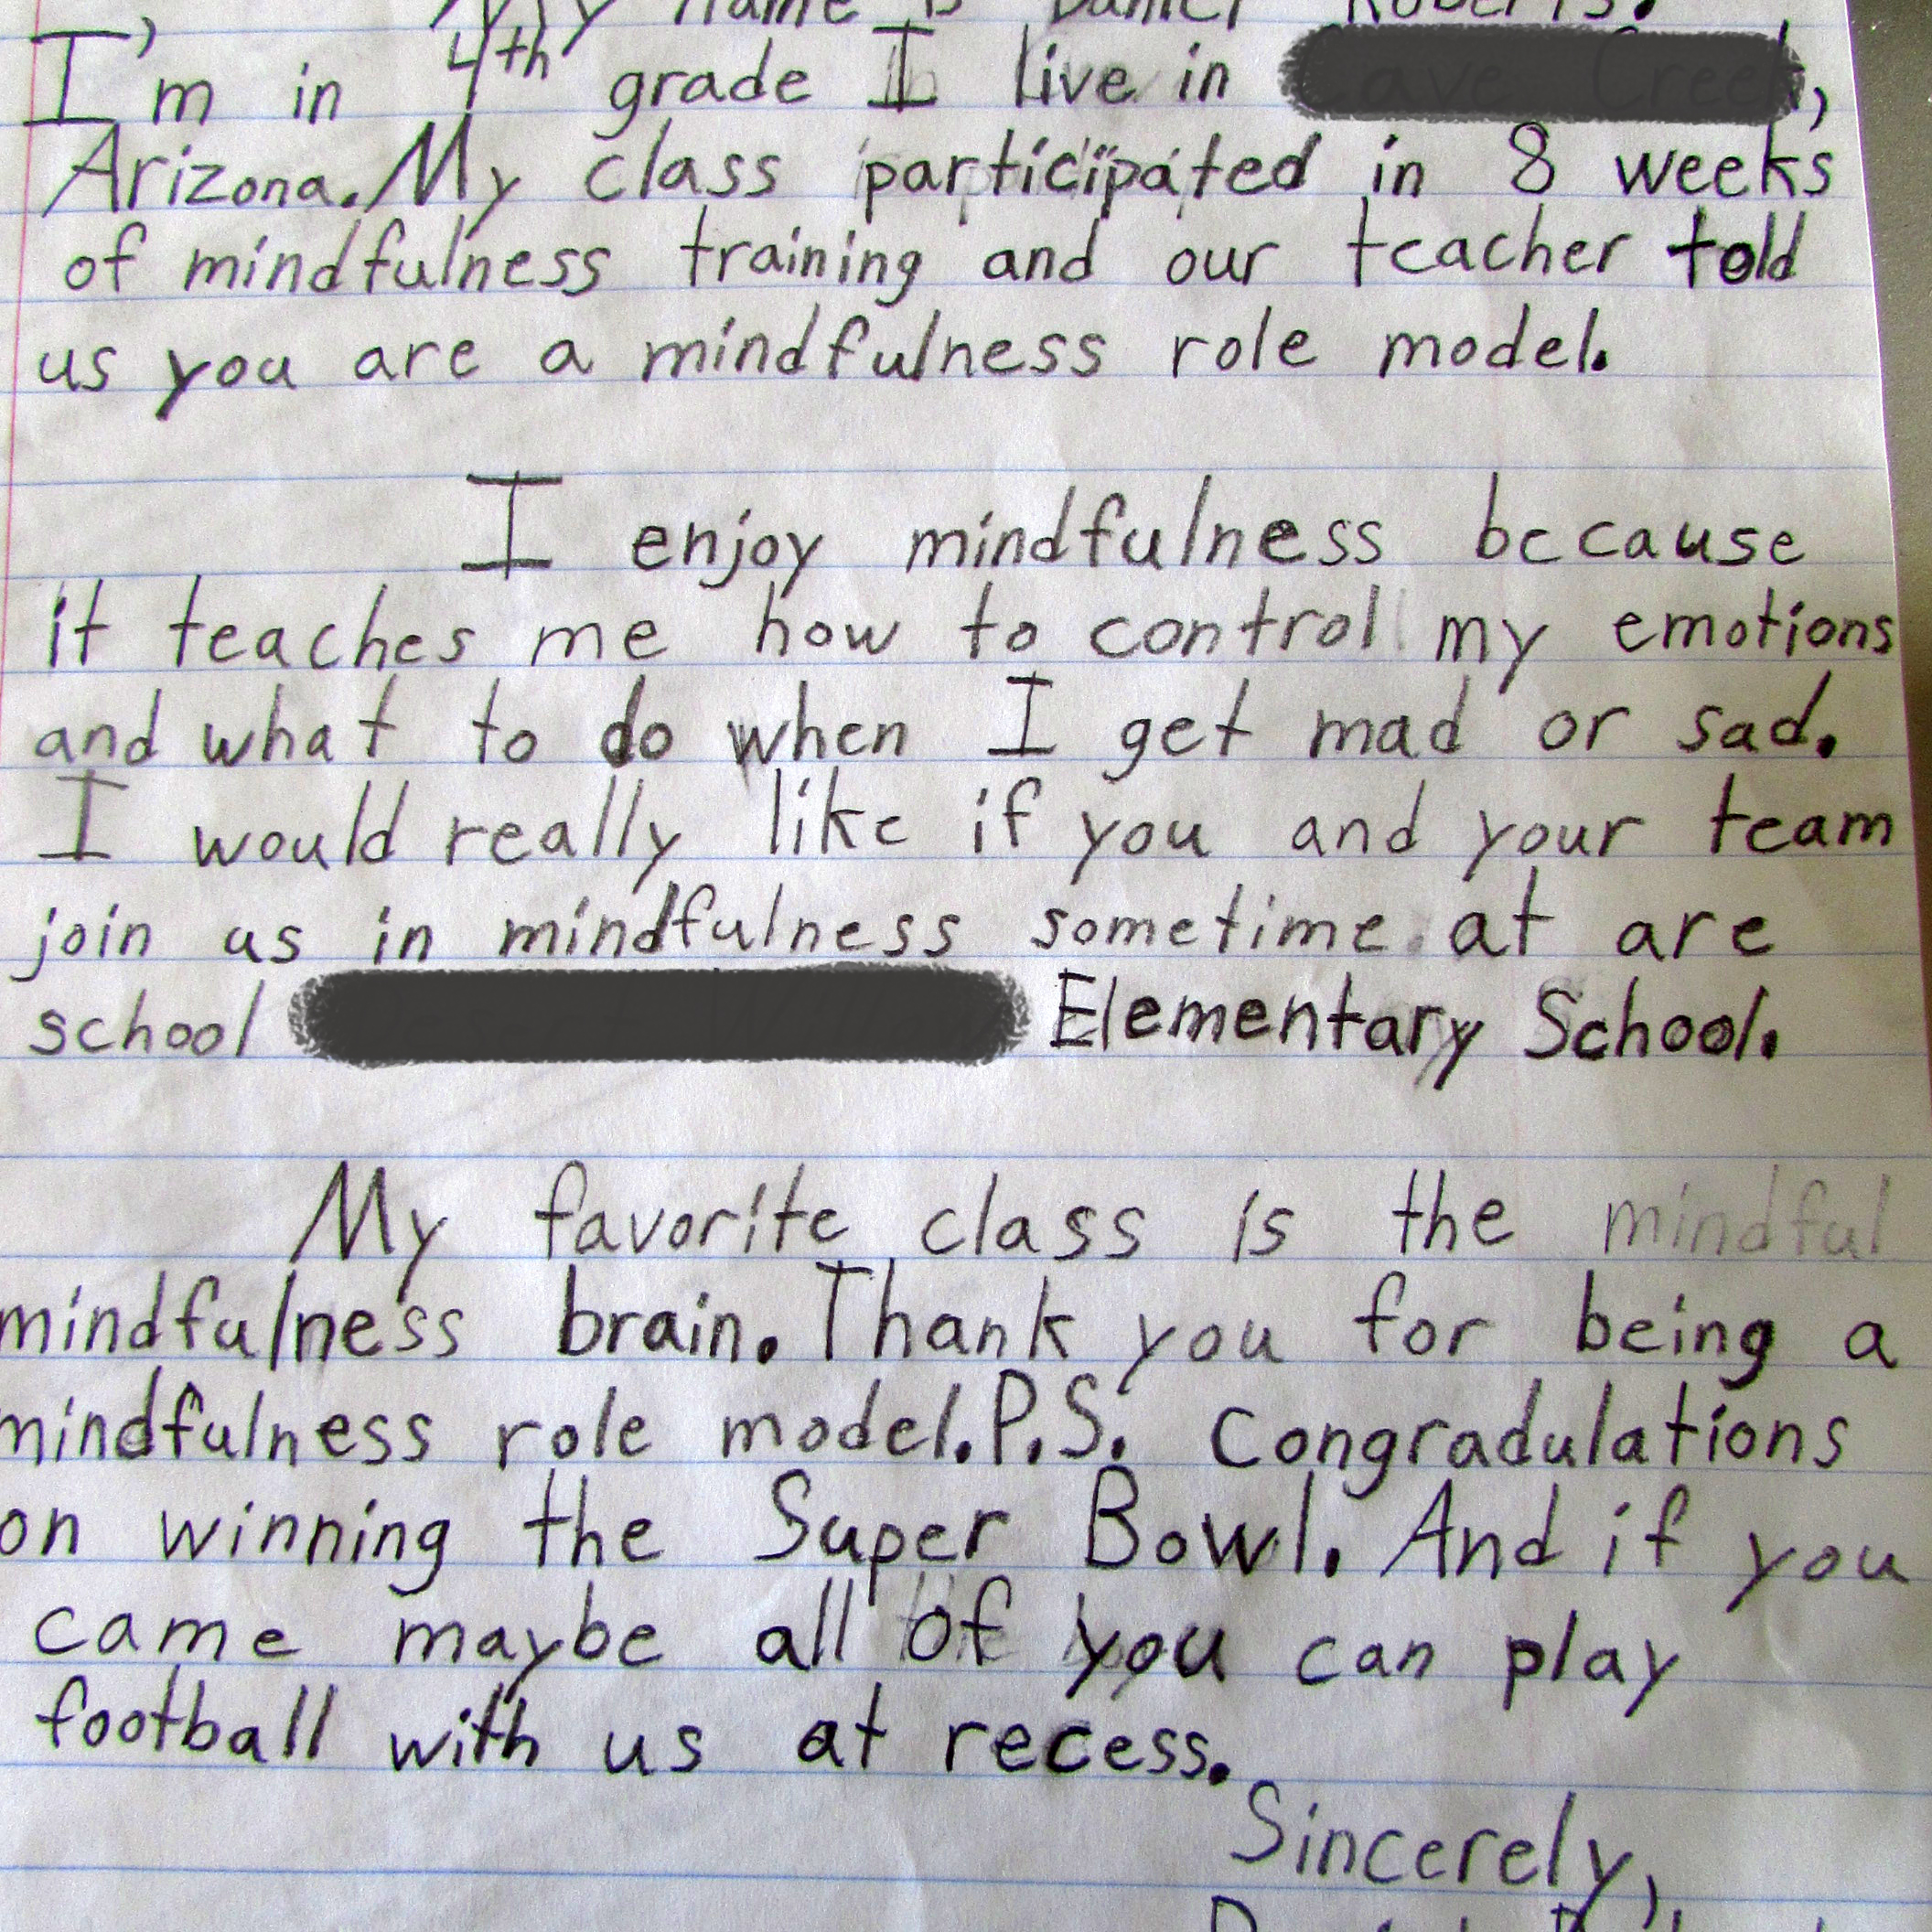 My name is Daniel Roberts.
I'm in 4th grade I live in ,
Arizona. My class participated in 8 weeks
of mindfulness training and our teacher told
us you are a mindfulness role model.
I enjoy mindfulness because
it teaches me how to control my emotions
and what to do when I get mad or sad.
I would really like if you and your team
join us in mindfulness sometime at are
school Elementary School.
My favorite class is the mindful
mindfulness brain. Thank you for being a
mindfulness role model. P.S. Congradulations
on winning the Super Bowl. And if you
came maybe all of you can play
football with us at recess.
Sincerely,